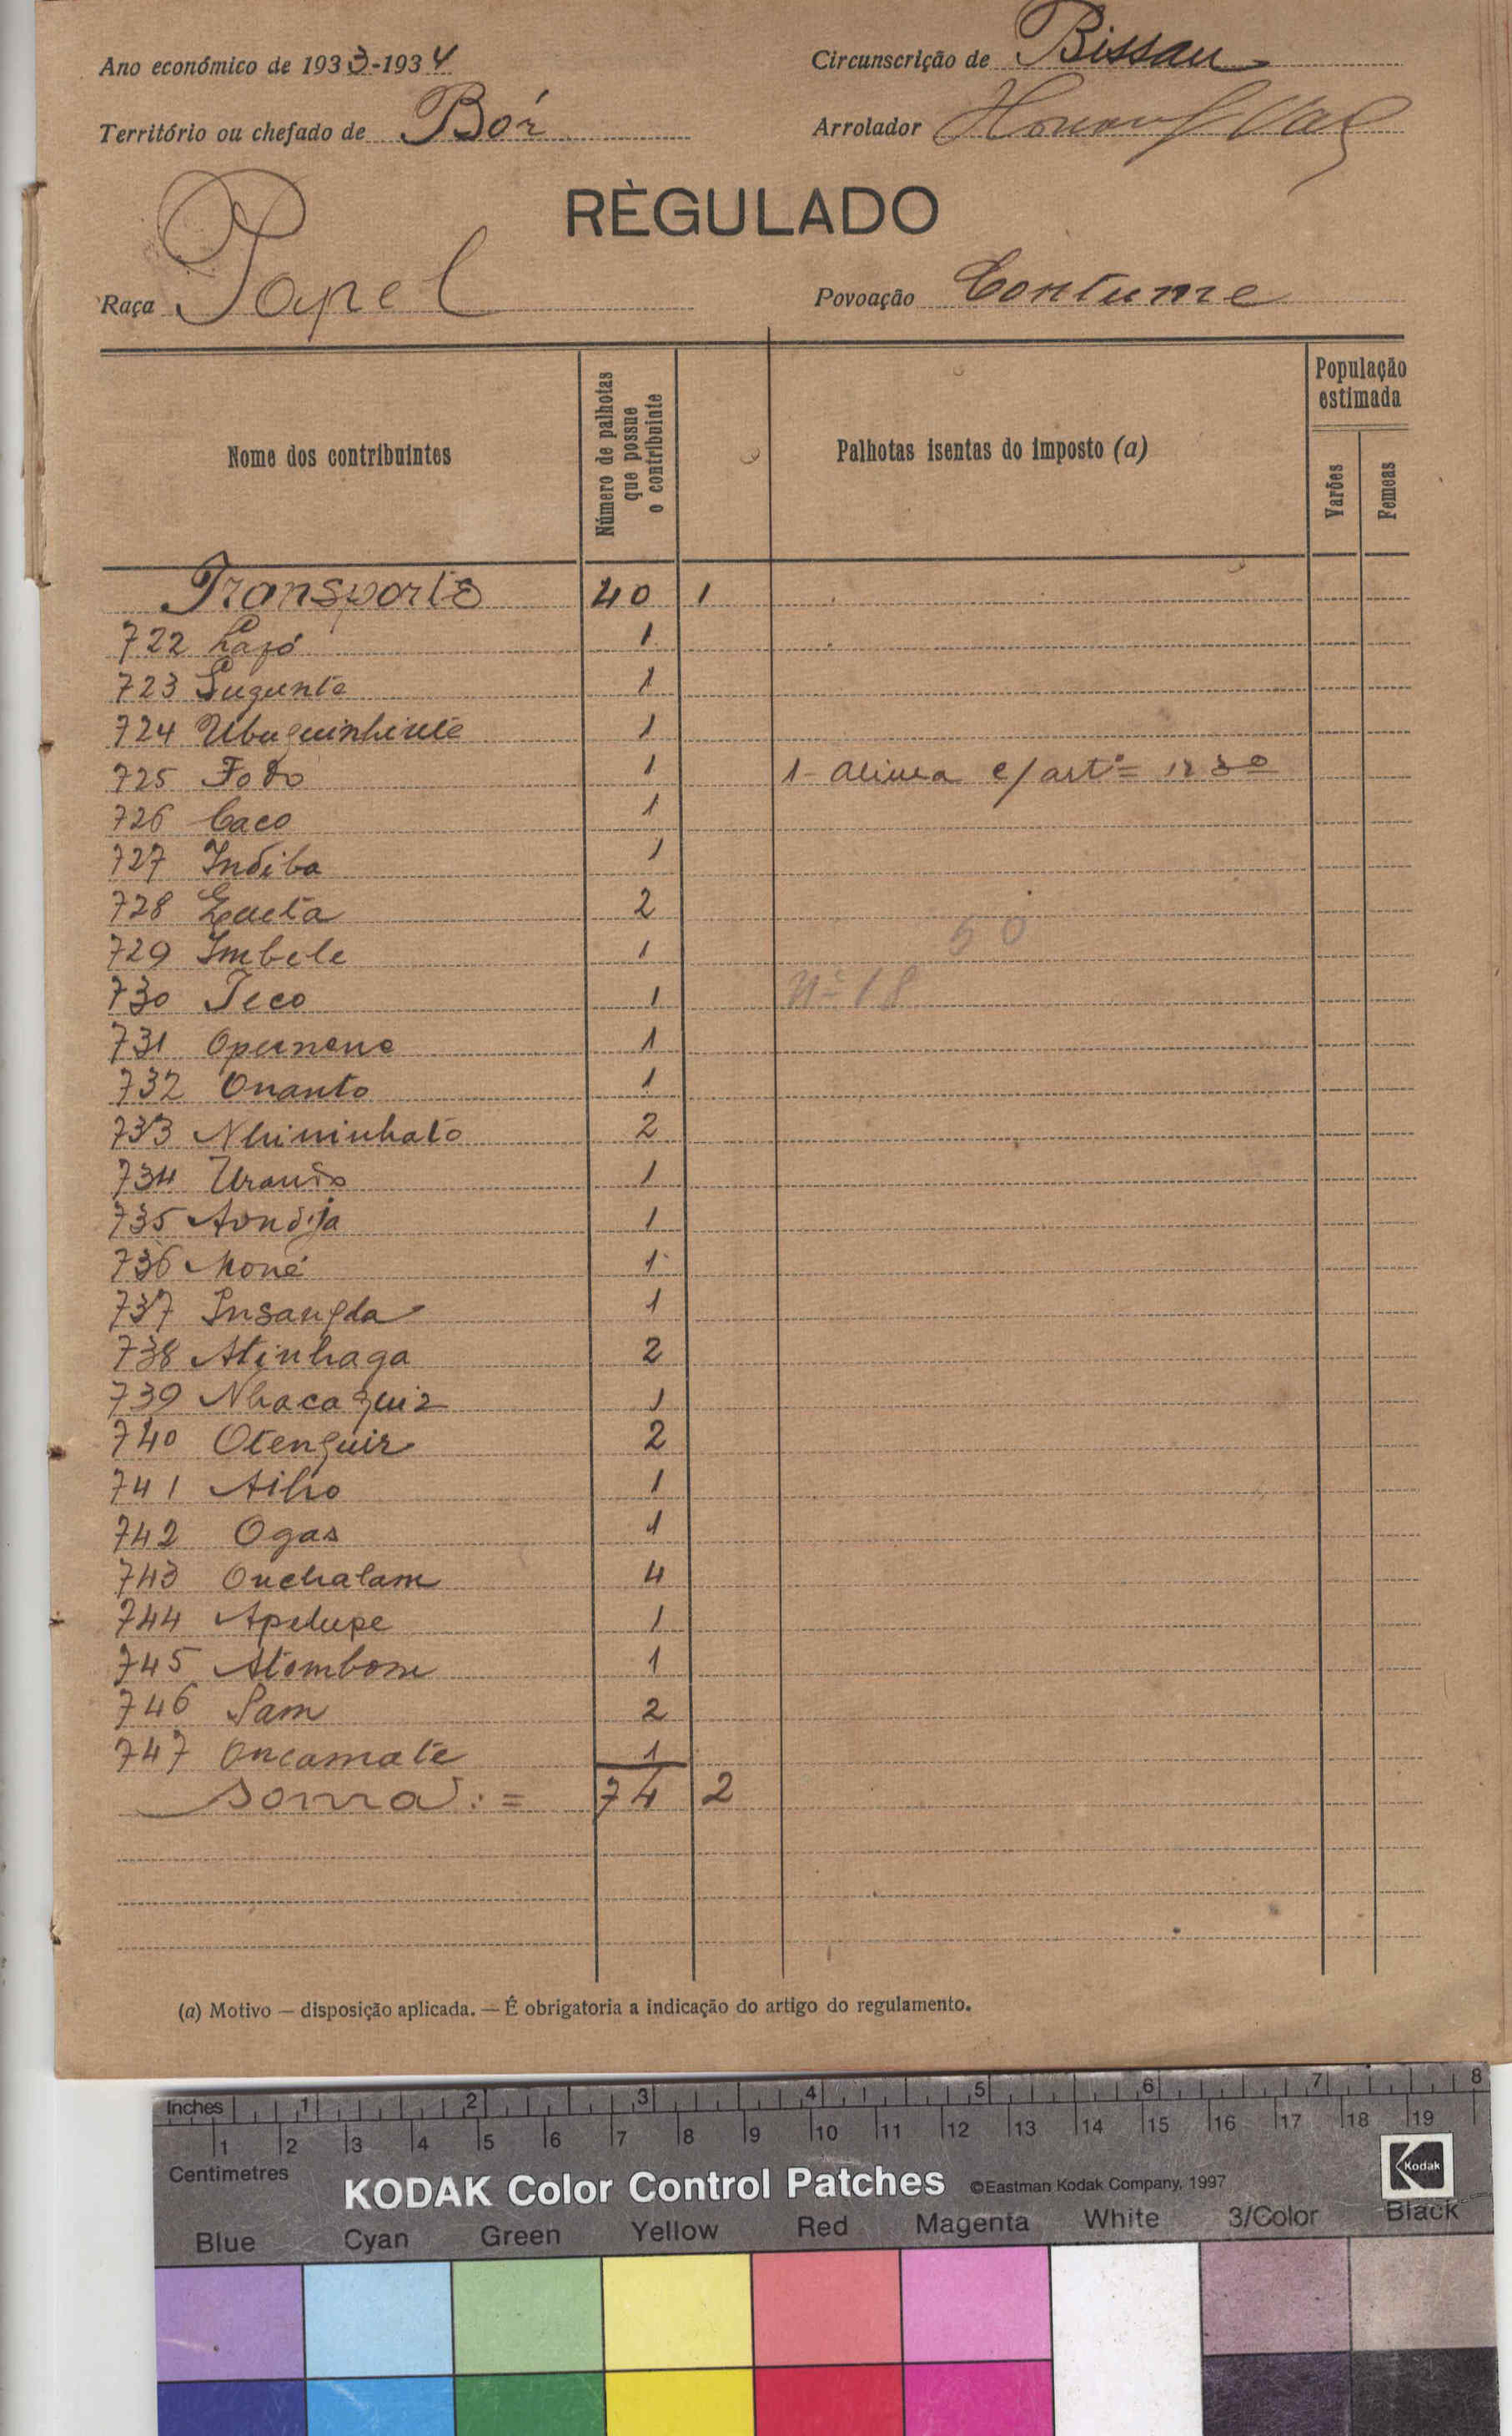 Ano económico de 1933-1934
Circunscrição de Bissau
Território ou chefado de Bór
Arrolador
RÈGULADO
Raça Papel
Povoação Contume
Nome dos contribuintes
Número de palhotas que possue o contribuinte
Palhotas isentas do imposto (a)
População estimada
Varões
Femeas
Transporte 40 1
722 1
723 1
724 1
725 Fodo 1 1 - alinea c/ artº =
726 Caco 1
727 Indiba 1
728 2
50
729 Imbele 1
730 Teco 1 Nº 18
731 1
732 Onanto 1
733 Nhininhato 2
734 1
735 Aondija 1
736 Moné 1
737 1
738 Atinhaga 2
739 1
740 Otenguir 2
741 Ailho 1
742 Ogas 1
743 Onchalam 4
744 Apelupe 1
745 Atombom 1
746 Sam 2
747 Oncamate 1
Soma: = 74 2
(a) Motivo — disposição aplicada. — É obrigatoria a indicação do artigo do regulamento.
Inches 1 2 3 4 5 6 7 8
1 2 3 4 5 6 7 8 9 10 11 12 13 14 15 16 17 18 19
Centimetres
KODAK Color Control Patches ©Eastman Kodak Company, 1997 Kodak
Blue Cyan Green Yellow Red Magenta White 3/Color Black